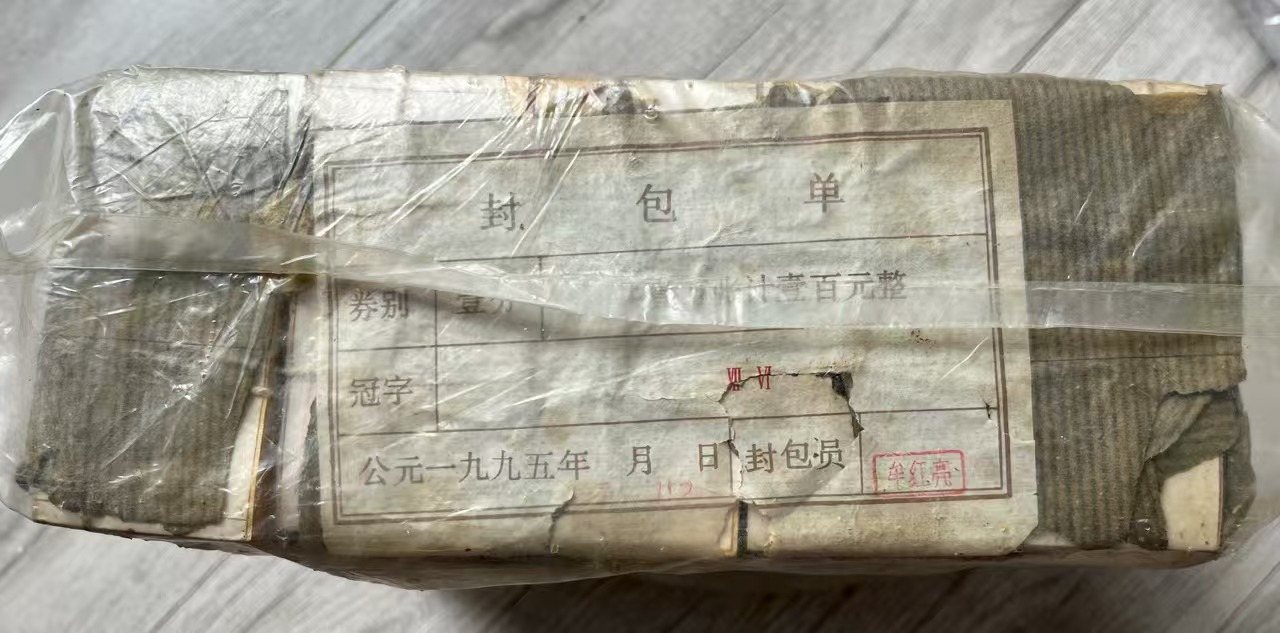 封包单
券别 壹分 计壹百元整
冠字 Ⅷ Ⅵ
公元一九九五年 月 日 封包员 牟红亮